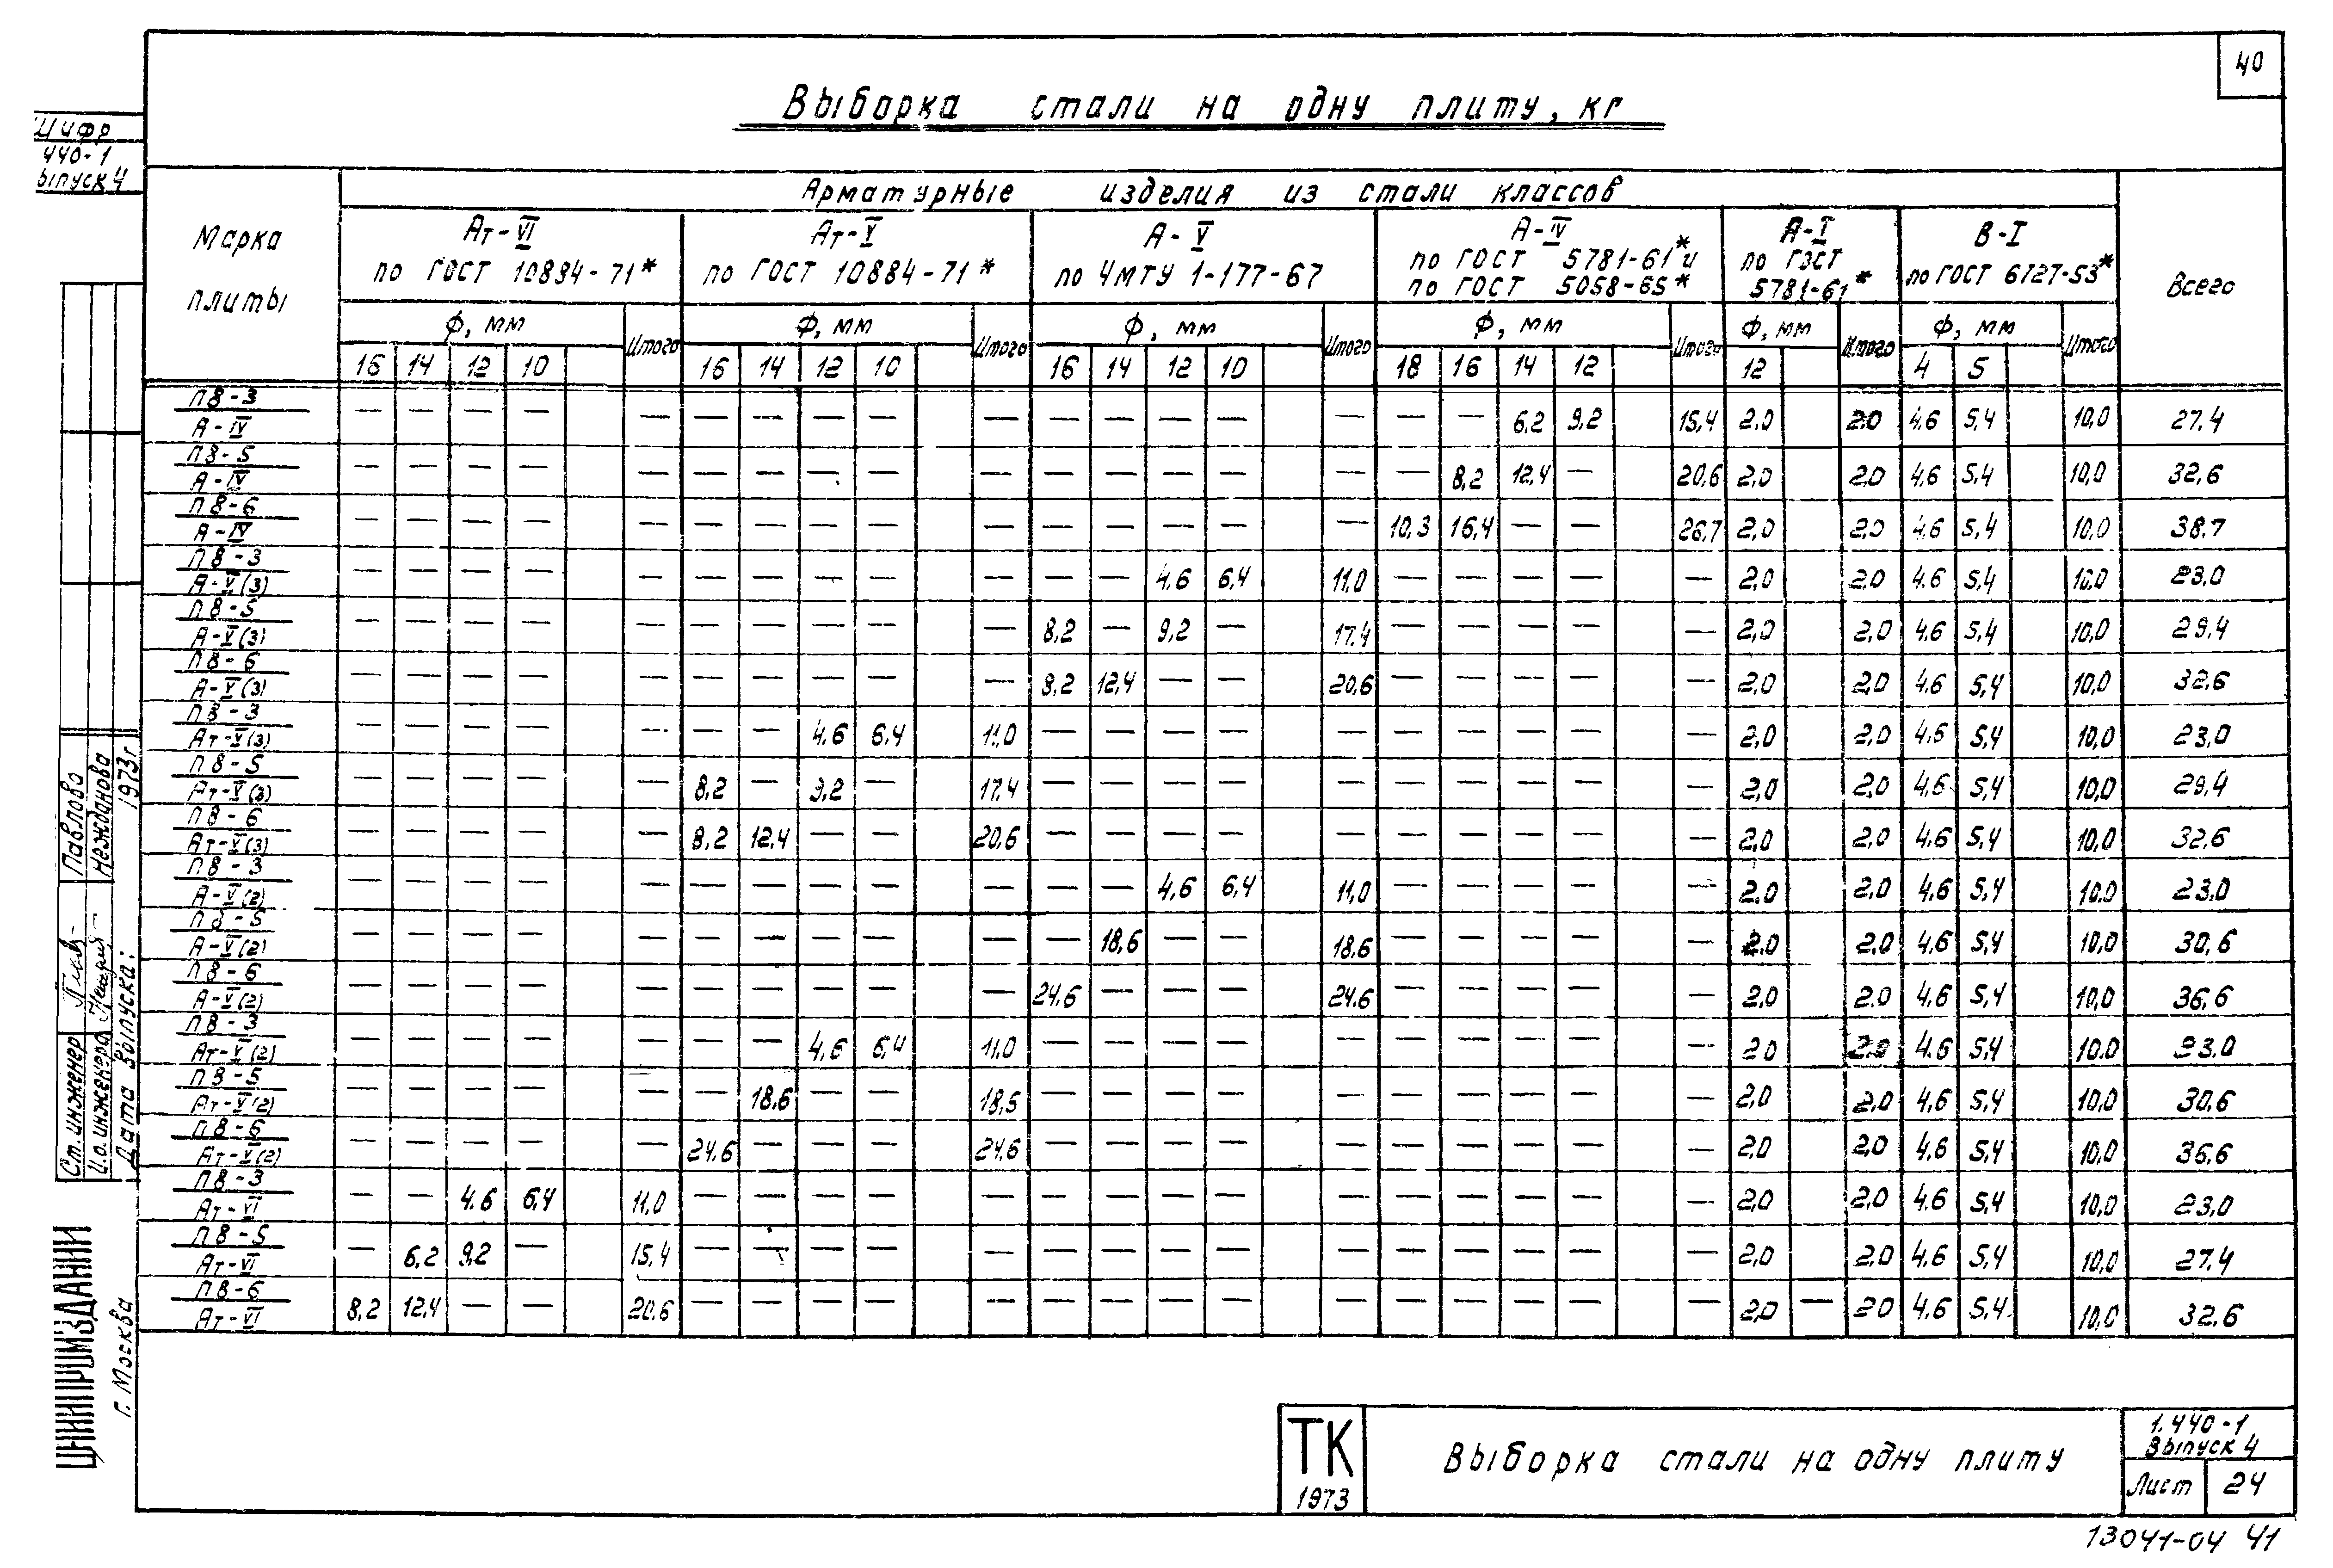 40
Выборка стали на одну плиту, кг
Шифр
440-1
ыпуск 4
Марка плиты
Арматурные изделия из стали классов
Всего
Ат-VI
по ГОСТ 10884-71*
Ат-V
по ГОСТ 10884-71*
А-V
по ЧМТУ 1-177-67
А-IV
по ГОСТ 5781-61* и
по ГОСТ 5058-65*
А-I
по ГОСТ
5781-61*
В-I
по ГОСТ 6727-53*
Ф, мм Итого Ф, мм Итого Ф, мм Итого Ф, мм Итого Ф, мм Итого Ф, мм Итого
16 14 12 10 16 14 12 10 16 14 12 10 18 16 14 12 12 4 5
П8-3
А-IV — — — — — — — — — — — — — — — — — 6,2 9,2 15,4 2,0 2,0 4,6 5,4 10,0 27,4
П8-5
А-IV — — — — — — — — — — — — — — — — 8,2 12,4 — 20,6 2,0 2,0 4,6 5,4 10,0 32,6
П8-6
А-IV — — — — — — — — — — — — — — — 10,3 16,4 — — 26,7 2,0 2,0 4,6 5,4 10,0 38,7
П8-3
А-V(3) — — — — — — — — — — — — 4,6 6,4 11,0 — — — — — 2,0 2,0 4,6 5,4 10,0 23,0
П8-5
А-V(3) — — — — — — — — — — 8,2 — 9,2 — 17,4 — — — — — 2,0 2,0 4,6 5,4 10,0 29,4
П8-6
А-V(3) — — — — — — — — — — 8,2 12,4 — — 20,6 — — — — — 2,0 2,0 4,6 5,4 10,0 32,6
П8-3
Ат-V(3) — — — — — — — 4,6 6,4 11,0 — — — — — — — — — — 2,0 2,0 4,6 5,4 10,0 23,0
П8-5
Ат-V(3) — — — — — 8,2 — 9,2 — 17,4 — — — — — — — — — — 2,0 2,0 4,6 5,4 10,0 29,4
П8-6
Ат-V(3) — — — — — 8,2 12,4 — — 20,6 — — — — — — — — — — 2,0 2,0 4,6 5,4 10,0 32,6
П8-3
А-V(2) — — — — — — — — — — — — 4,6 6,4 11,0 — — — — — 2,0 2,0 4,6 5,4 10,0 23,0
П8-5
А-V(2) — — — — — — — — — — — 18,6 — — 18,6 — — — — — 2,0 2,0 4,6 5,4 10,0 30,6
П8-6
А-V(2) — — — — — — — — — — 24,6 — — — 24,6 — — — — — 2,0 2,0 4,6 5,4 10,0 36,6
П8-3
Ат-V(2) — — — — — — — 4,6 6,4 11,0 — — — — — — — — — — 2,0 2,0 4,6 5,4 10,0 23,0
П8-5
Ат-V(2) — — — — — — 18,6 — — 18,6 — — — — — — — — — — 2,0 2,0 4,6 5,4 10,0 30,6
П8-6
Ат-V(2) — — — — — 24,6 — — — 24,6 — — — — — — — — — — 2,0 2,0 4,6 5,4 10,0 36,6
П8-3
Ат-VI — — 4,6 6,4 11,0 — — — — — — — — — — — — — — — 2,0 2,0 4,6 5,4 10,0 23,0
П8-5
Ат-VI — 6,2 9,2 — 15,4 — — — — — — — — — — — — — — — 2,0 2,0 4,6 5,4 10,0 27,4
П8-6
Ат-VI 8,2 12,4 — — 20,6 — — — — — — — — — — — — — — — 2,0 — 2,0 4,6 5,4 10,0 32,6
Ст. инженер Павлова
И.о. инженера Нежданова
Дата выпуска: 1973г
ЦНИИПРОМЗДАНИЙ
г. Москва
ТК
1973
Выборка стали на одну плиту
1.440-1
Выпуск 4
Лист 24
13041-04 41